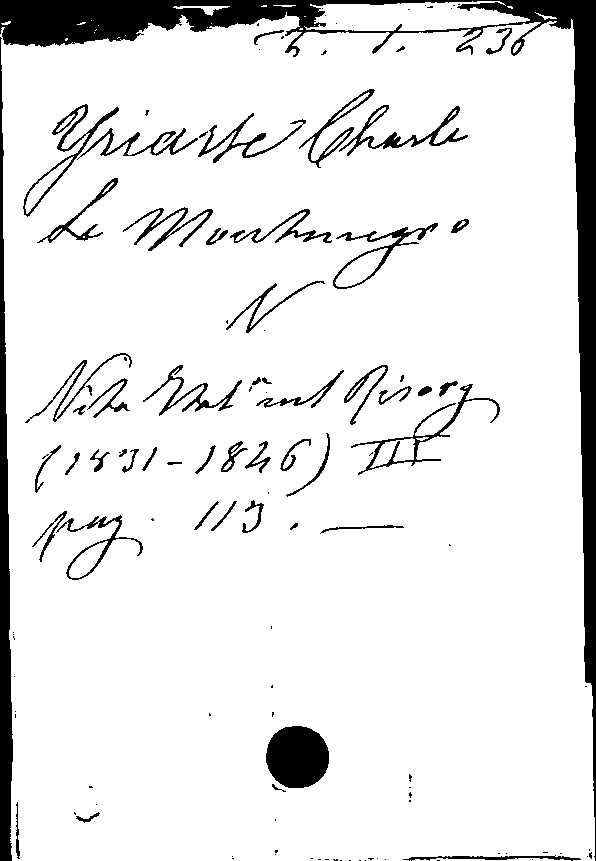 2. 1. 236
Yriarte Charle
Le Montenegro
N
Vita Ital.na nel Risorg
(1831-1846) III
pag. 113. —